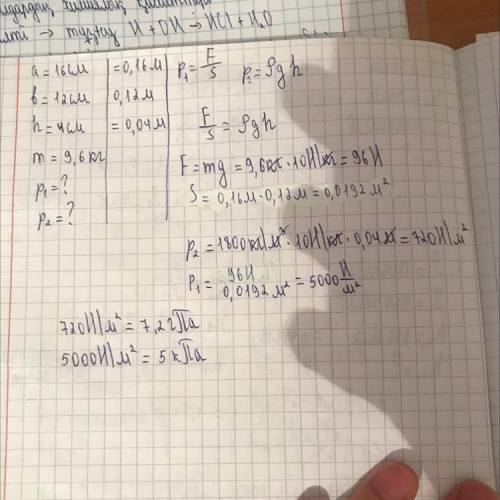 тұздау И + ОН → HCl + H₂O
a = 16см = 0,16м
b = 12см 0,12м
h = 4см = 0,04м
m = 9,6кг
p₁ = ?
p₂ = ?
p₁ = F/S p₂ = ρgh
F/S = ρgh
F = mg = 9,6кг · 10Н/кг = 96Н
S = 0,16м · 0,12м = 0,0192м²
p₂ = 1800кг/м³ · 10Н/кг · 0,04м = 720Н/м²
p₁ = 96Н/0,0192м² = 5000 Н/м²
720Н/м² = 7,2гПа
5000Н/м² = 5кПа